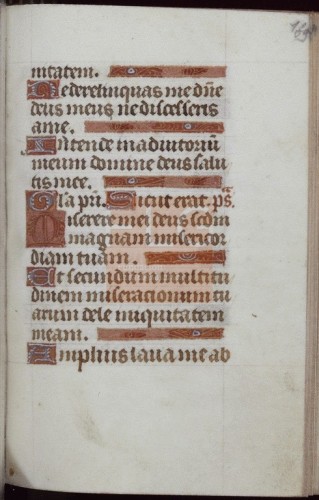 nitatem.
Ne derelinquas me dñe
deus meus ne discesseris
a me.
Intende in adiutoriũ
meum domine deus salu
tis mee.
Gla pri. Sicut erat. ps.
Miserere mei deus scdm
magnam misericor
diam tuam.
Et secundum multitu
dinem miseracionum tu
arum dele iniquitatem
meam.
Amplius laua me ab